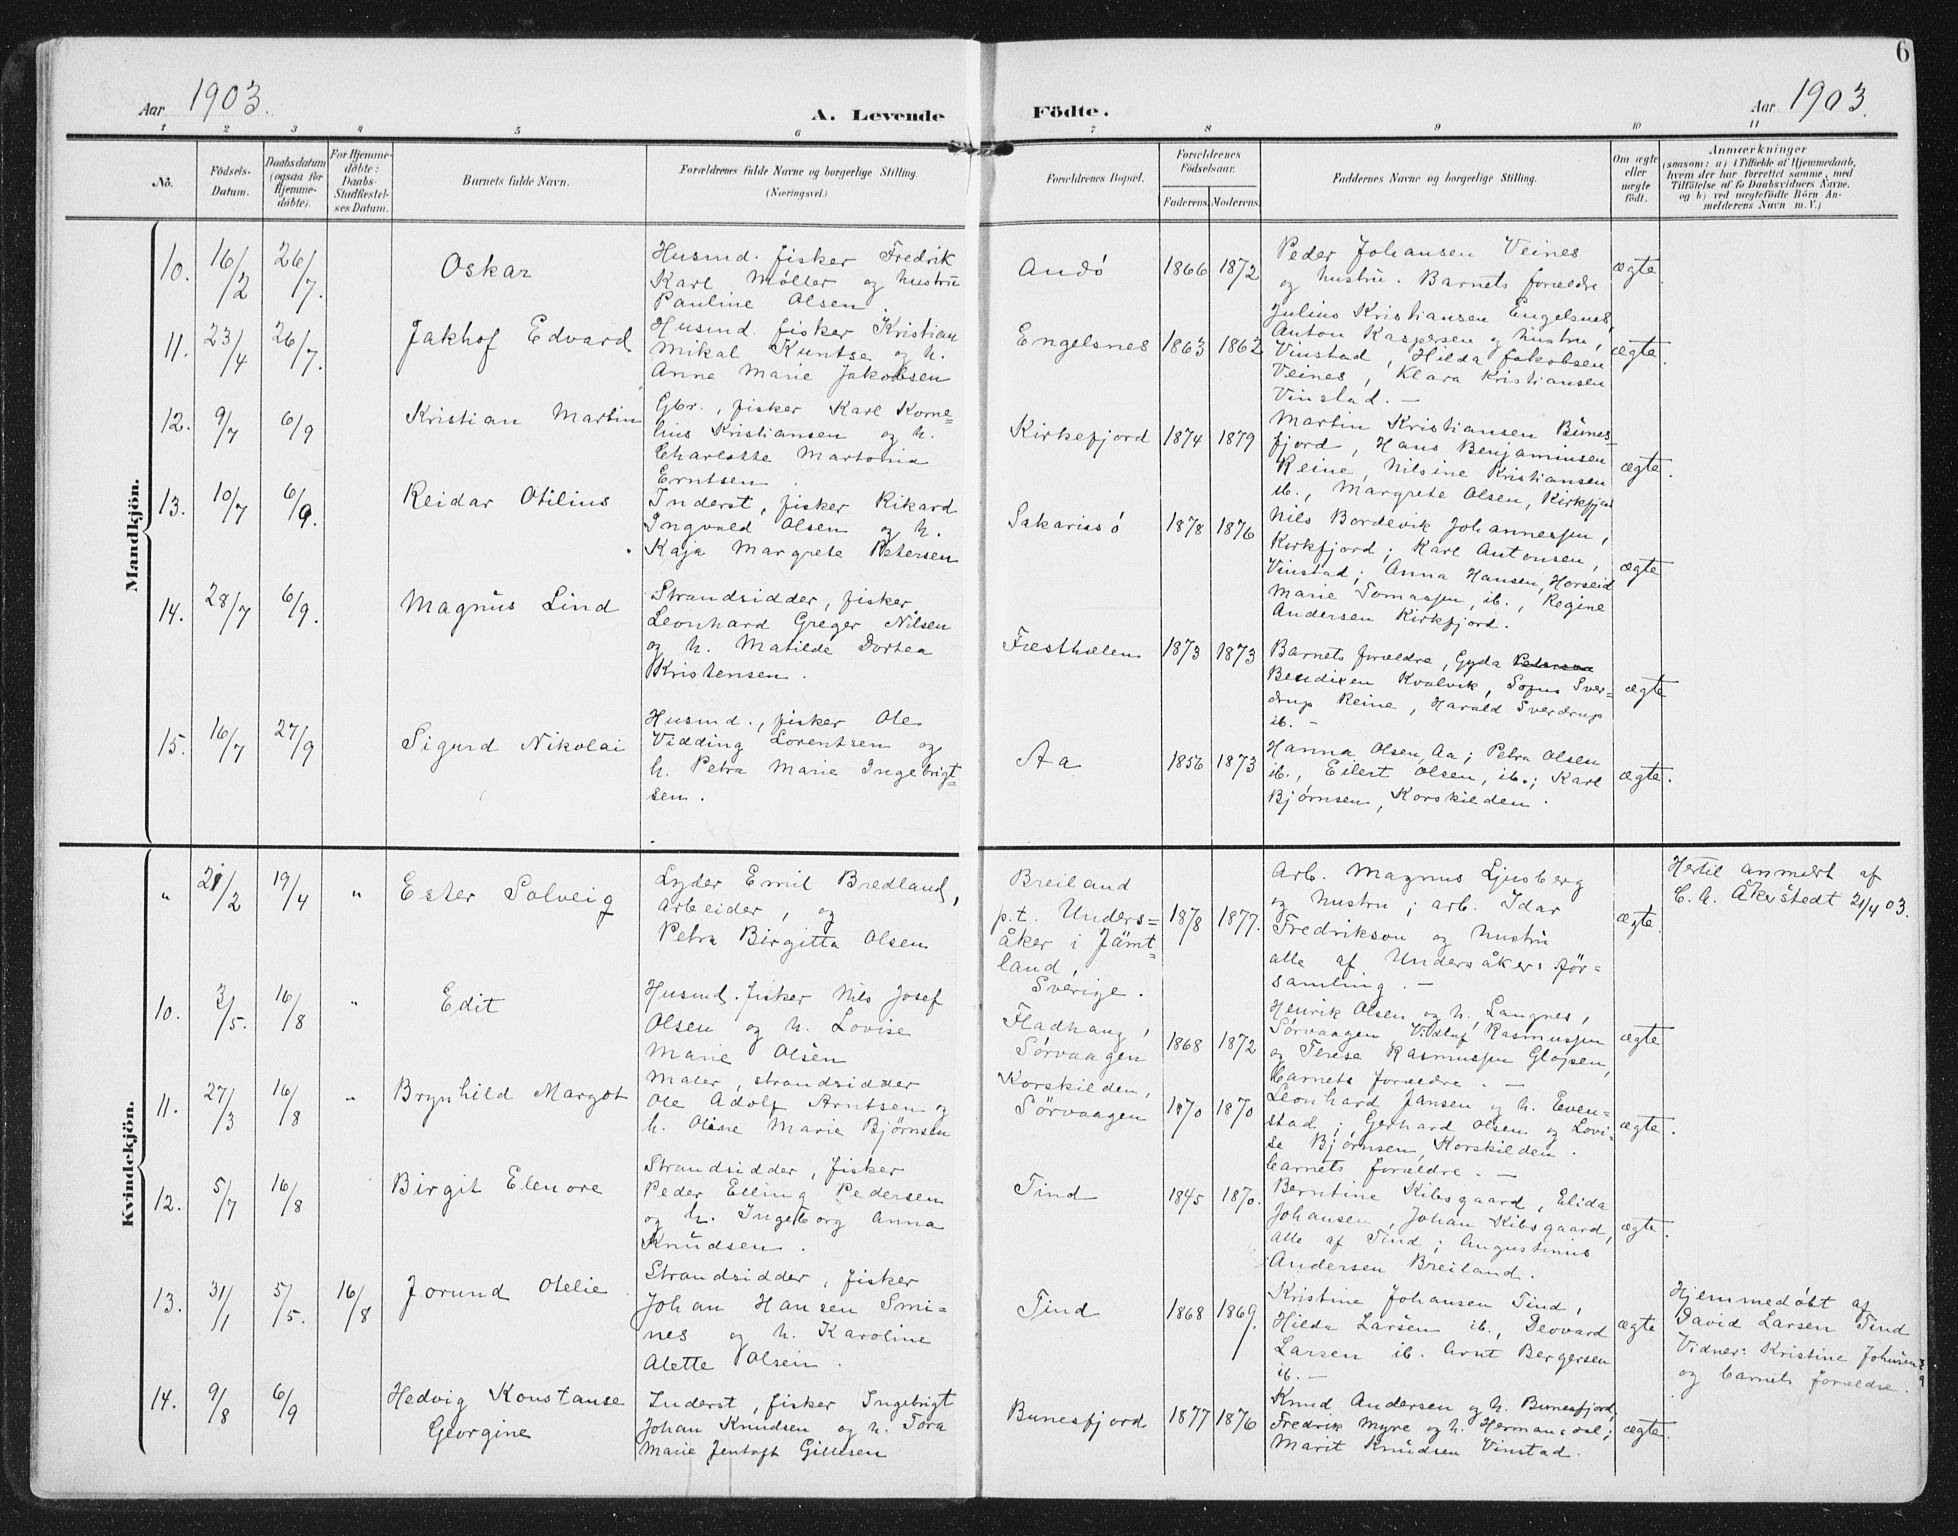 6
Aar 1903.
A. Levende
Födte.
Aar 1903.
1 2 3 4 5 6 7 8 9 10 11
No.
Födsels-
Datum.
Daabsdatum
(ogsaa for
Hjemme-
döbte).
For Hjemme-
döbte:
Daabs-
Stadfæstel-
ses Datum.
Barnets fulde Navn.
Forældrenes fulde Navne og borgerlige Stilling.
(Næringsvei.)
Forældrenes Bopæl.
Forældrenes
Födselsaar.
Faderens. Moderens.
Faddernes Navne og borgerlige Stilling.
Om ægte
eller
uægte
födt.
Anmærkninger
(saasom: a) i Tilfælde af Hjemmedaab,
hvem der har forrettet samme, med
Tilföielse af to Daabsvidners Navne.
og b) ved uægtefödte Börn An-
melderens Navn m. V.)
Mandkjön.
10. 16/2 26/7. Oskar
Husmd. fisker Fredrik
Karl Møller og hustru
Pauline Olsen
Andø 1866 1872
Peder Johansen Veines
og hustru. Barnets forældre
ægte.
11. 23/4 26/7. Jakhof Edvard
Husmd. fisker Kristian
Mikal Kuntse og h.
Anne Marie Jakobsen
Engelsnes 1863 1862
Julius Kristiansen Engelsnes,
Anton Kaspersen og hustru,
Vinstad, Hilda Jakobsen
Veines, Klara Kristiansen
Vinstad. —
ægte.
12. 9/7 6/9 Kristian Martin
Gbr., fisker Karl Korne-
lius Kristiansen og h.
Charlotte Martonia
Erntsen.
Kirkefjord 1874 1879
Martin Kristiansen Bunes-
fjord, Hans Benjaminsen
Reine, Nilsine Kristiansen
ib., Margrete Olsen, Kirkfjord
ægte.
13. 10/7 6/9. Reidar Otilius
Inderst, fisker Rikard
Ingvald Olsen og h.
Kaja Margrete Petersen
Sakarisø 1878 1876
Nils Bordevik Johannessen,
Kirkfjord; Karl Antonsen,
Vinstad; Anna Hansen, Horseid
Marie Tomassen, ib., Regine
Andersen Kirkfjord.
ægte
14. 28/7 6/9. Magnus Lind
Strandsidder, fisker
Leonhard Greger Nilsen
og h. Matilde Dortea
Kristensen.
Festhælen 1873 1873
Barnets forældre, Gyda
Bendixen Kvalvik, Sopus Sver-
drup Reine, Harald Sverdrup
ib. —
ægte
15. 16/7 27/9 Sigurd Nikolai
Husmd., fisker Ole
Vidding Lorentsen og
h. Petra Marie Ingebrigt-
sen.
Aa 1856 1873
Hanna Olsen, Aa; Petra Olsen
ib., Eilert Olsen, ib.; Karl
Bjørnsen, Korskilden.
ægte.
Kvindekjön.
" 21/2 19/4 " Ester Solveig
Lyder Emil Bredland,
Arbeider, og
Petra Birgitta Olsen
Breiland
p.t. Unders-
åker i Jämt-
land,
Sverige.
1878 1877.
Arb. Magnus Ljusberg
og hustru; arb. Idar
Fredrikson og hustru
alle af Undersåkers för-
samling. —
ægte.
Hertil anmeldt af
C. A. Åkerstedt 21/4 03.
10. 3/5. 16/8 " Edit
Husmd. fisker Nils Josef
Olsen og h. Lovise
Marie Olsen
Fladhaug,
Sørvaagen
1868 1872
Henrik Olsen og h. Langnes,
Sørvaagen Vidluf Rasmussen
og Terese Rasmussen Glopen,
barnets forældre. —
ægte
11. 27/3 16/8 " Brynhild Margot
Maler, strandsidder
Ole Adolf Arntsen og
h. Oline Marie Bjørnsen
Korskilden,
Sörvaagen
1870 1870
Leonhard Jansen og h. Even-
stad; Gerhard Olsen og Lovi-
se Bjørnsen, Korskilden.
barnets forældre. —
ægte.
12. 5/7 16/8 Birgit Elenore
Strandsidder, fisker
Peder Elling Pedersen
og h. Ingeborg Anna
Knudsen.
Tind 1845 1870.
Berntine Kibsgaard, Elida
Johansen, Johan Kibsgaard,
alle af Tind; Augustinus
Andersen Breiland.
ægte.
13. 31/1 5/5. 16/8 Jorund Otelie
Strandsidder, fisker
Johan Hansen Smi-
nes og h. Karoline
Alette Olsen.
Tind 1868 1869.
Kristine Johansen Tind,
Hilda Larsen ib., Deovard
Larsen ib. Arnt Bergersen
ib. —
ægte
Hjemmedøbt af
David Larsen Tind
Vidner: Kristine Johnsen
og barnets forældre.
14. 9/8 6/9 Hedvig Konstanse
Georgine
Inderst, fisker Ingebrigt
Johan Knudsen og h. Tora
Marie Jentoft Gillesen
Bunesfjord 1877 1876
Knud Andersen og h. Bunesfjord,
Fredrik Myre og h. Hermansdal;
Marit Knudsen Vinstad.
ægte.